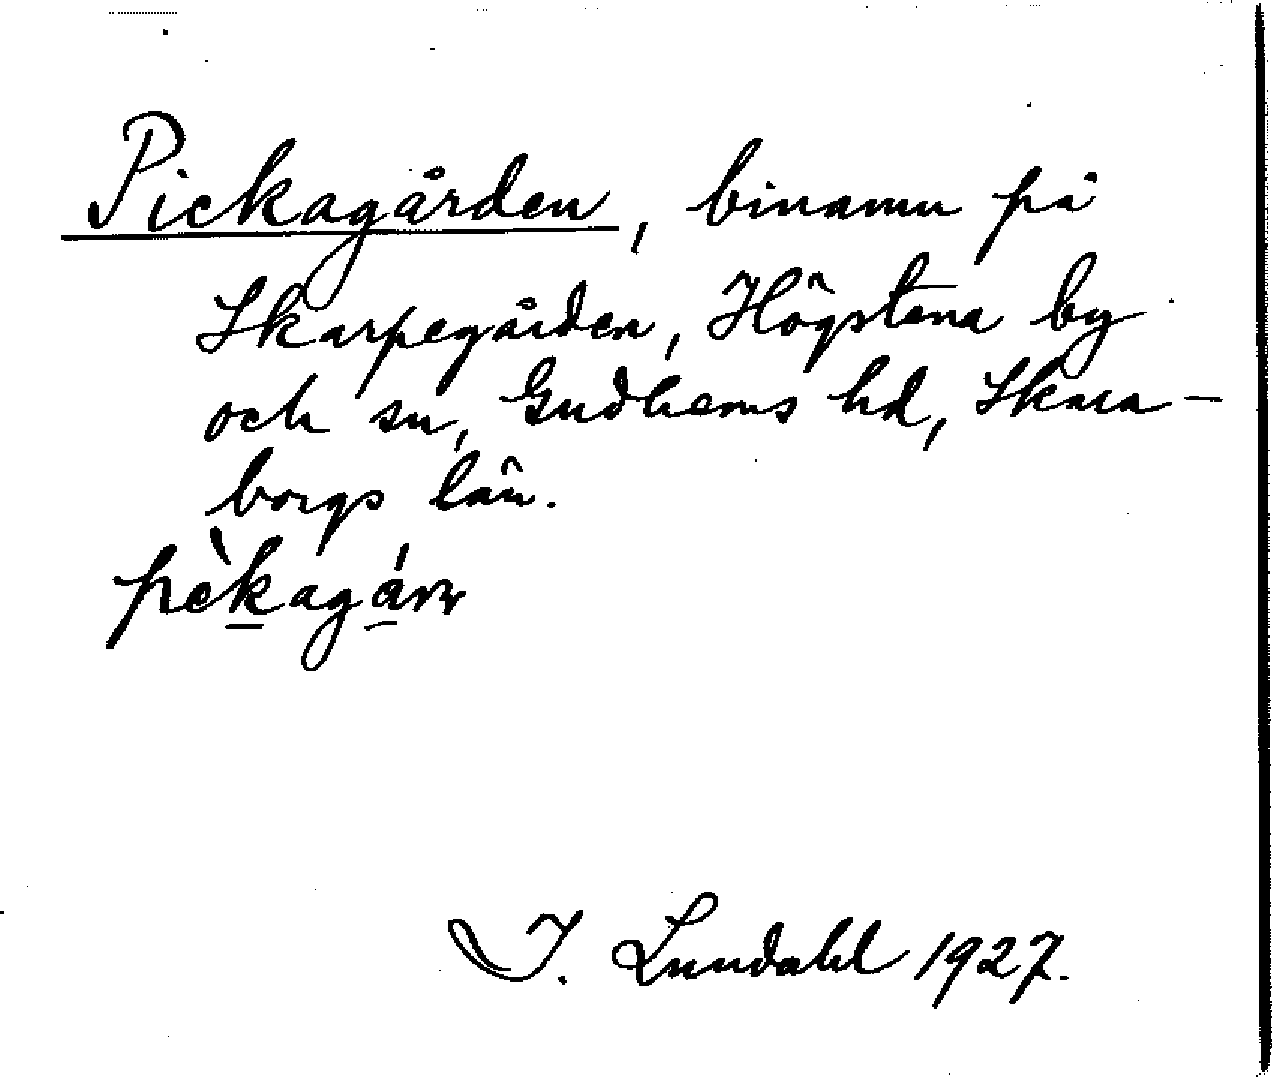 Pickagården, binamn på
Skarpegården, Högstena by
och sn, Gudhems hd, Skara-
borgs län.
pèkagárn
I. Lundahl 1927.